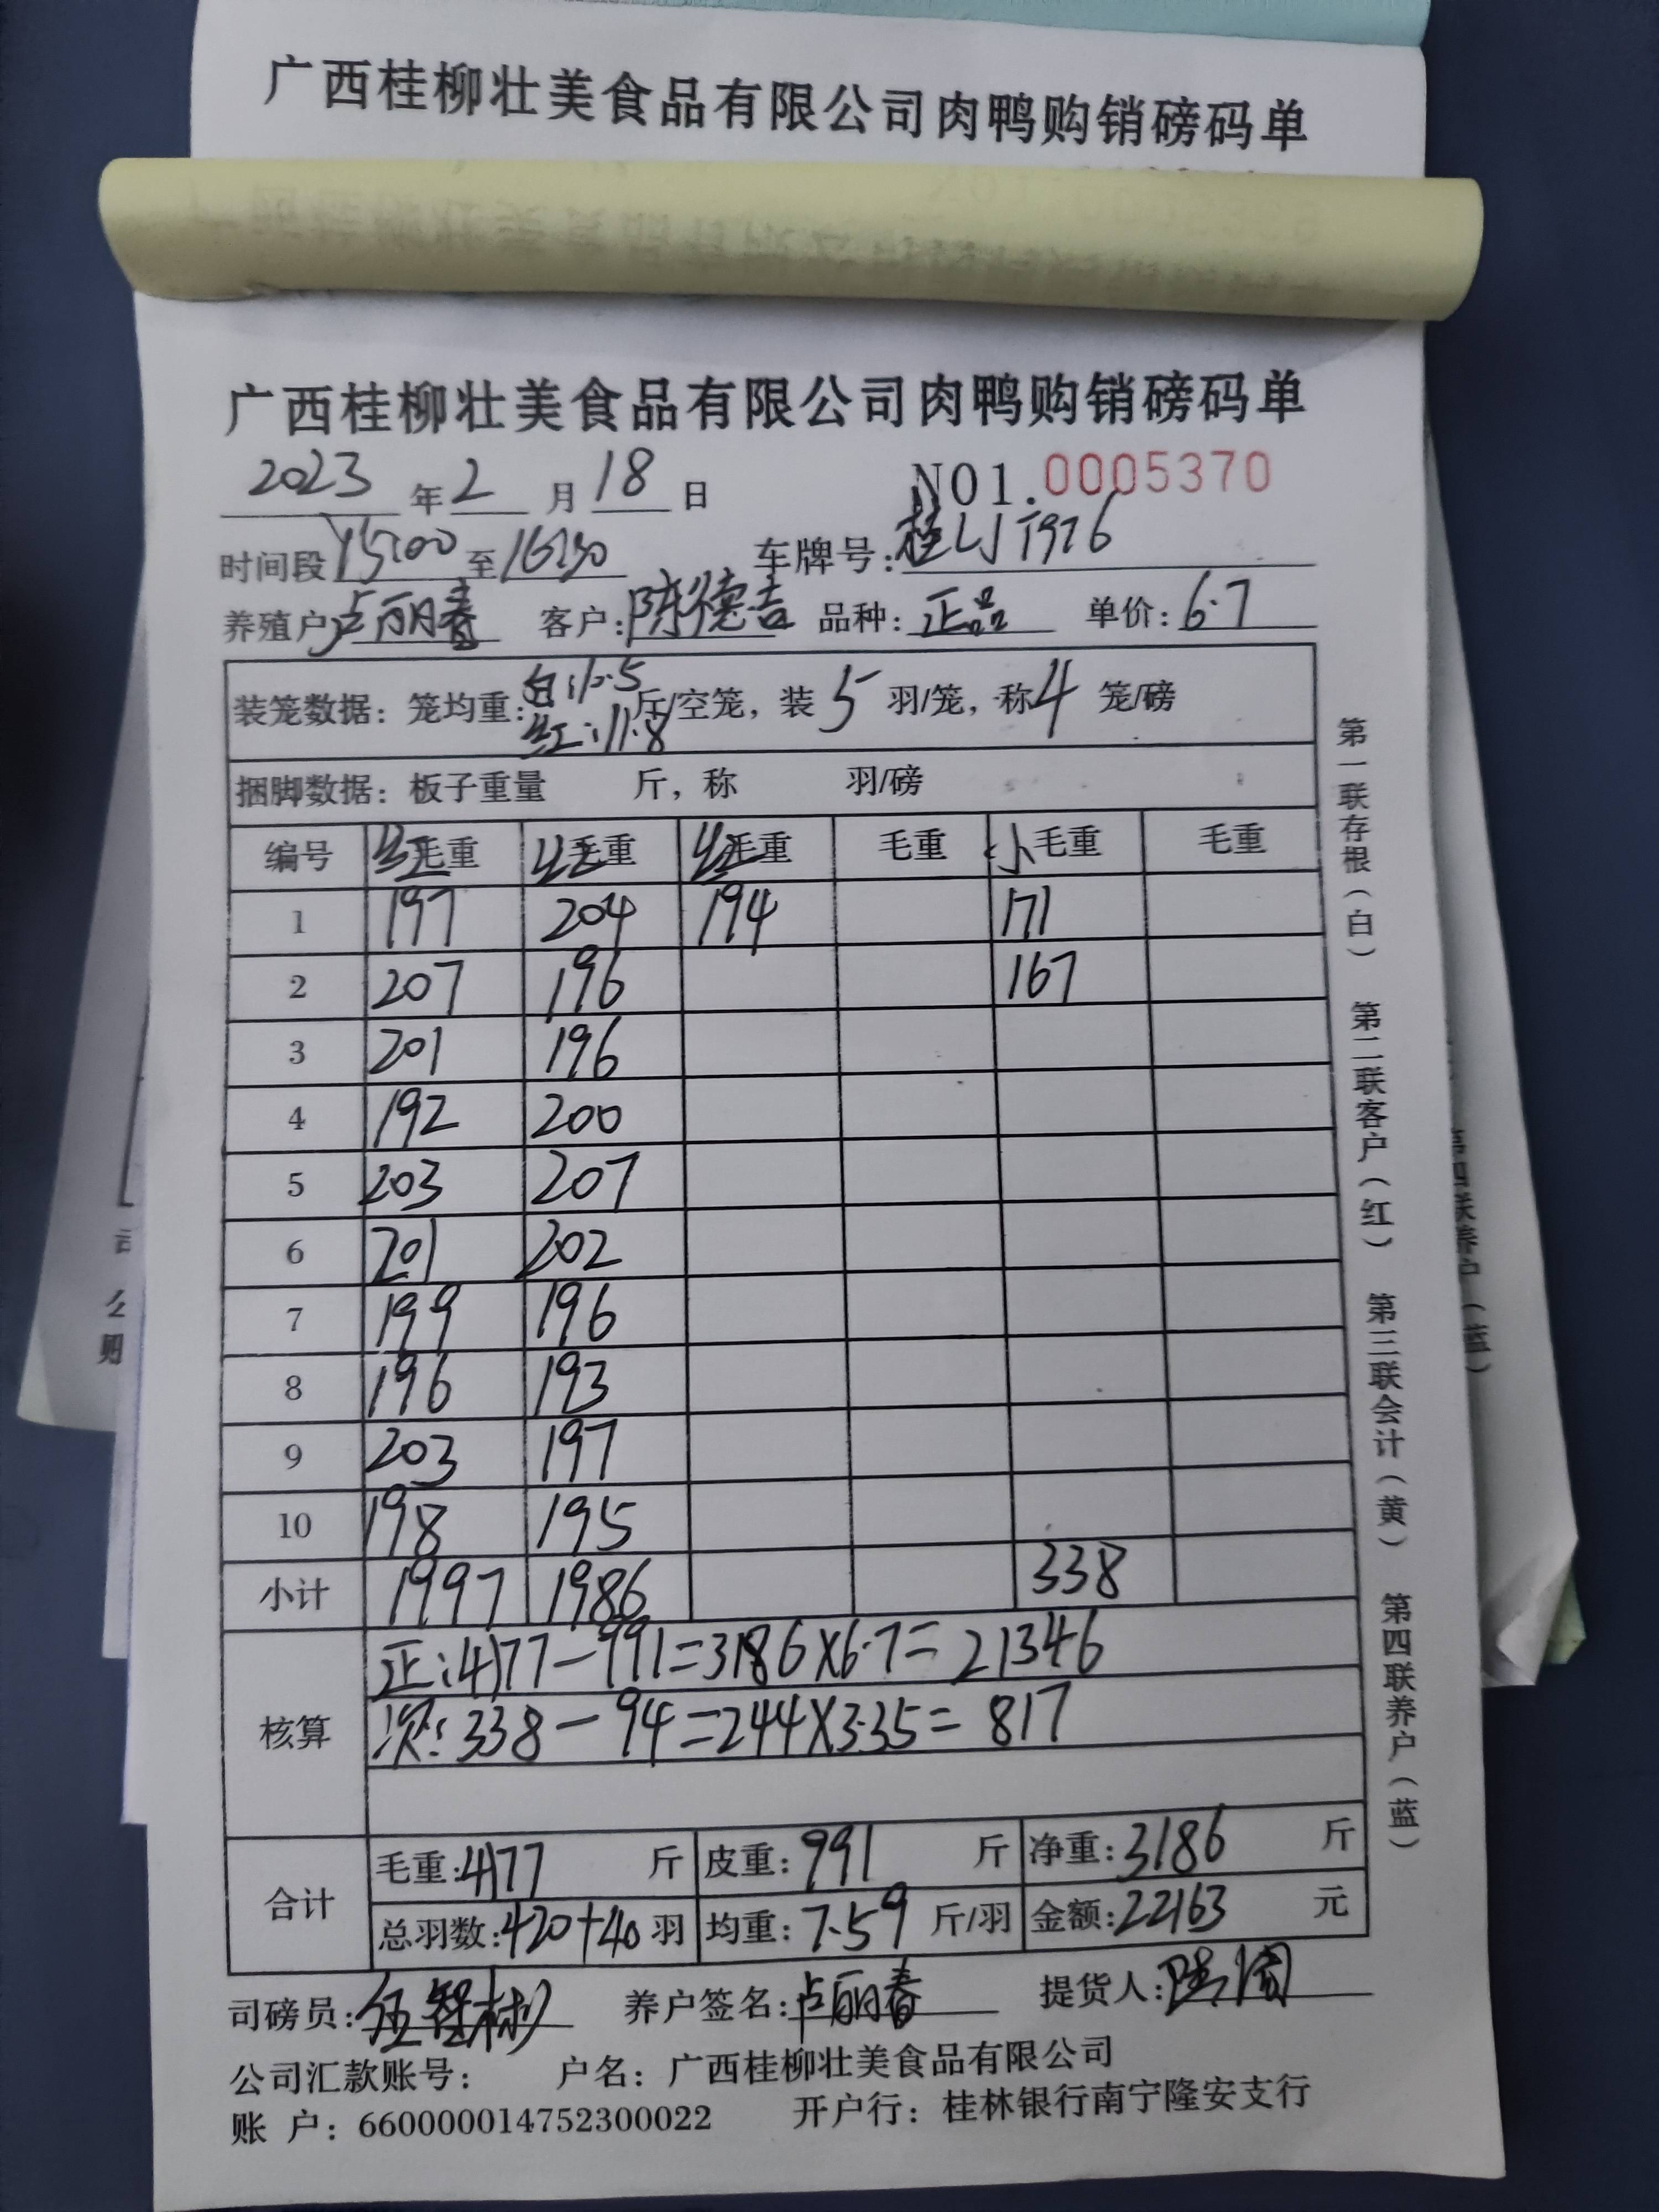 广西桂柳壮美食品有限公司肉鸭购销磅码单
广西桂柳壮美食品有限公司肉鸭购销磅码单
2023年2月18日 NO1.0005370
时间段15:00至16:30 车牌号:桂LJ1976
养殖户卢丽春 客户:陈德吉 品种:正品 单价:6.7
装笼数据:笼均重:白:12.5 红:11.8斤/空笼,装5羽/笼,称4笼/磅
捆脚数据:板子重量 斤,称 羽/磅
编号 红毛重 红毛重 红毛重 毛重 小毛重 毛重
1 197 204 194 171
2 207 196 167
3 201 196
4 192 200
5 203 207
6 201 202
7 199 196
8 196 193
9 203 197
10 198 195
小计 1997 1986 338
核算 正:4177-991=3186×6.7=21346
次:338-94=244×3.35=817
合计 毛重:4177斤 皮重:991斤 净重:3186斤
总羽数:420+40羽 均重:7.59斤/羽 金额:22163元
司磅员:伍智彬 养户签名:卢丽春 提货人:
公司汇款账号: 户名:广西桂柳壮美食品有限公司
账 户:660000014752300022 开户行:桂林银行南宁隆安支行
第一联存根(白) 第二联客户(红) 第三联会计(黄) 第四联养户(蓝)